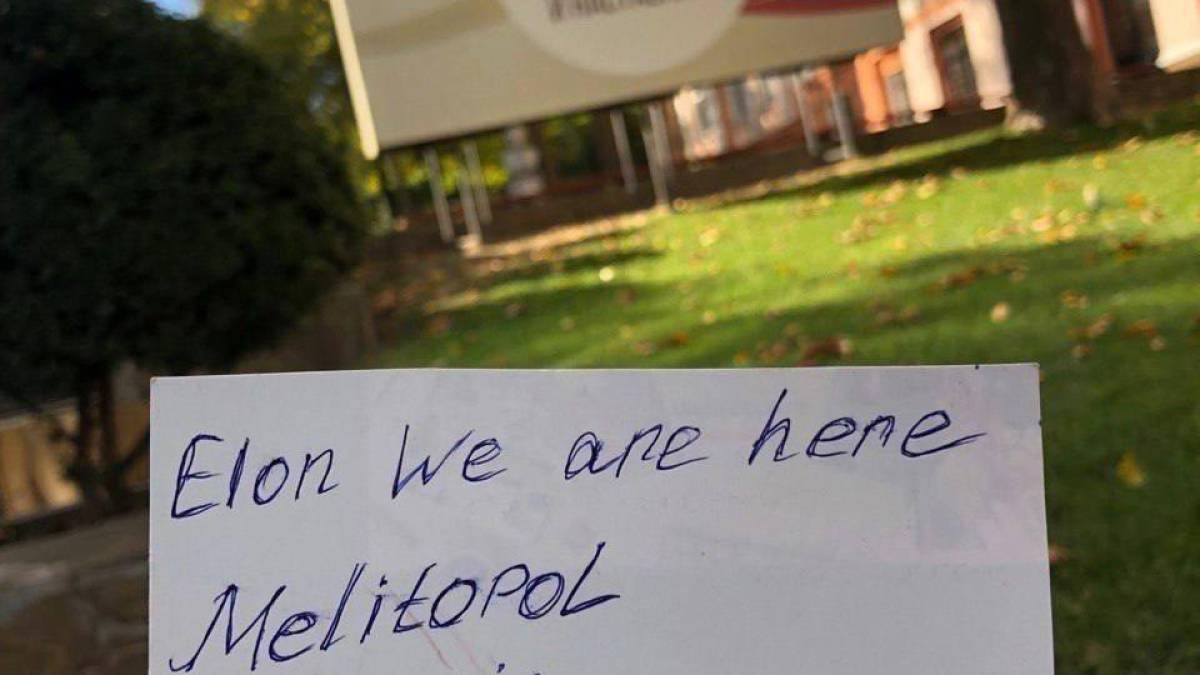 Elon We are here
Melitopol